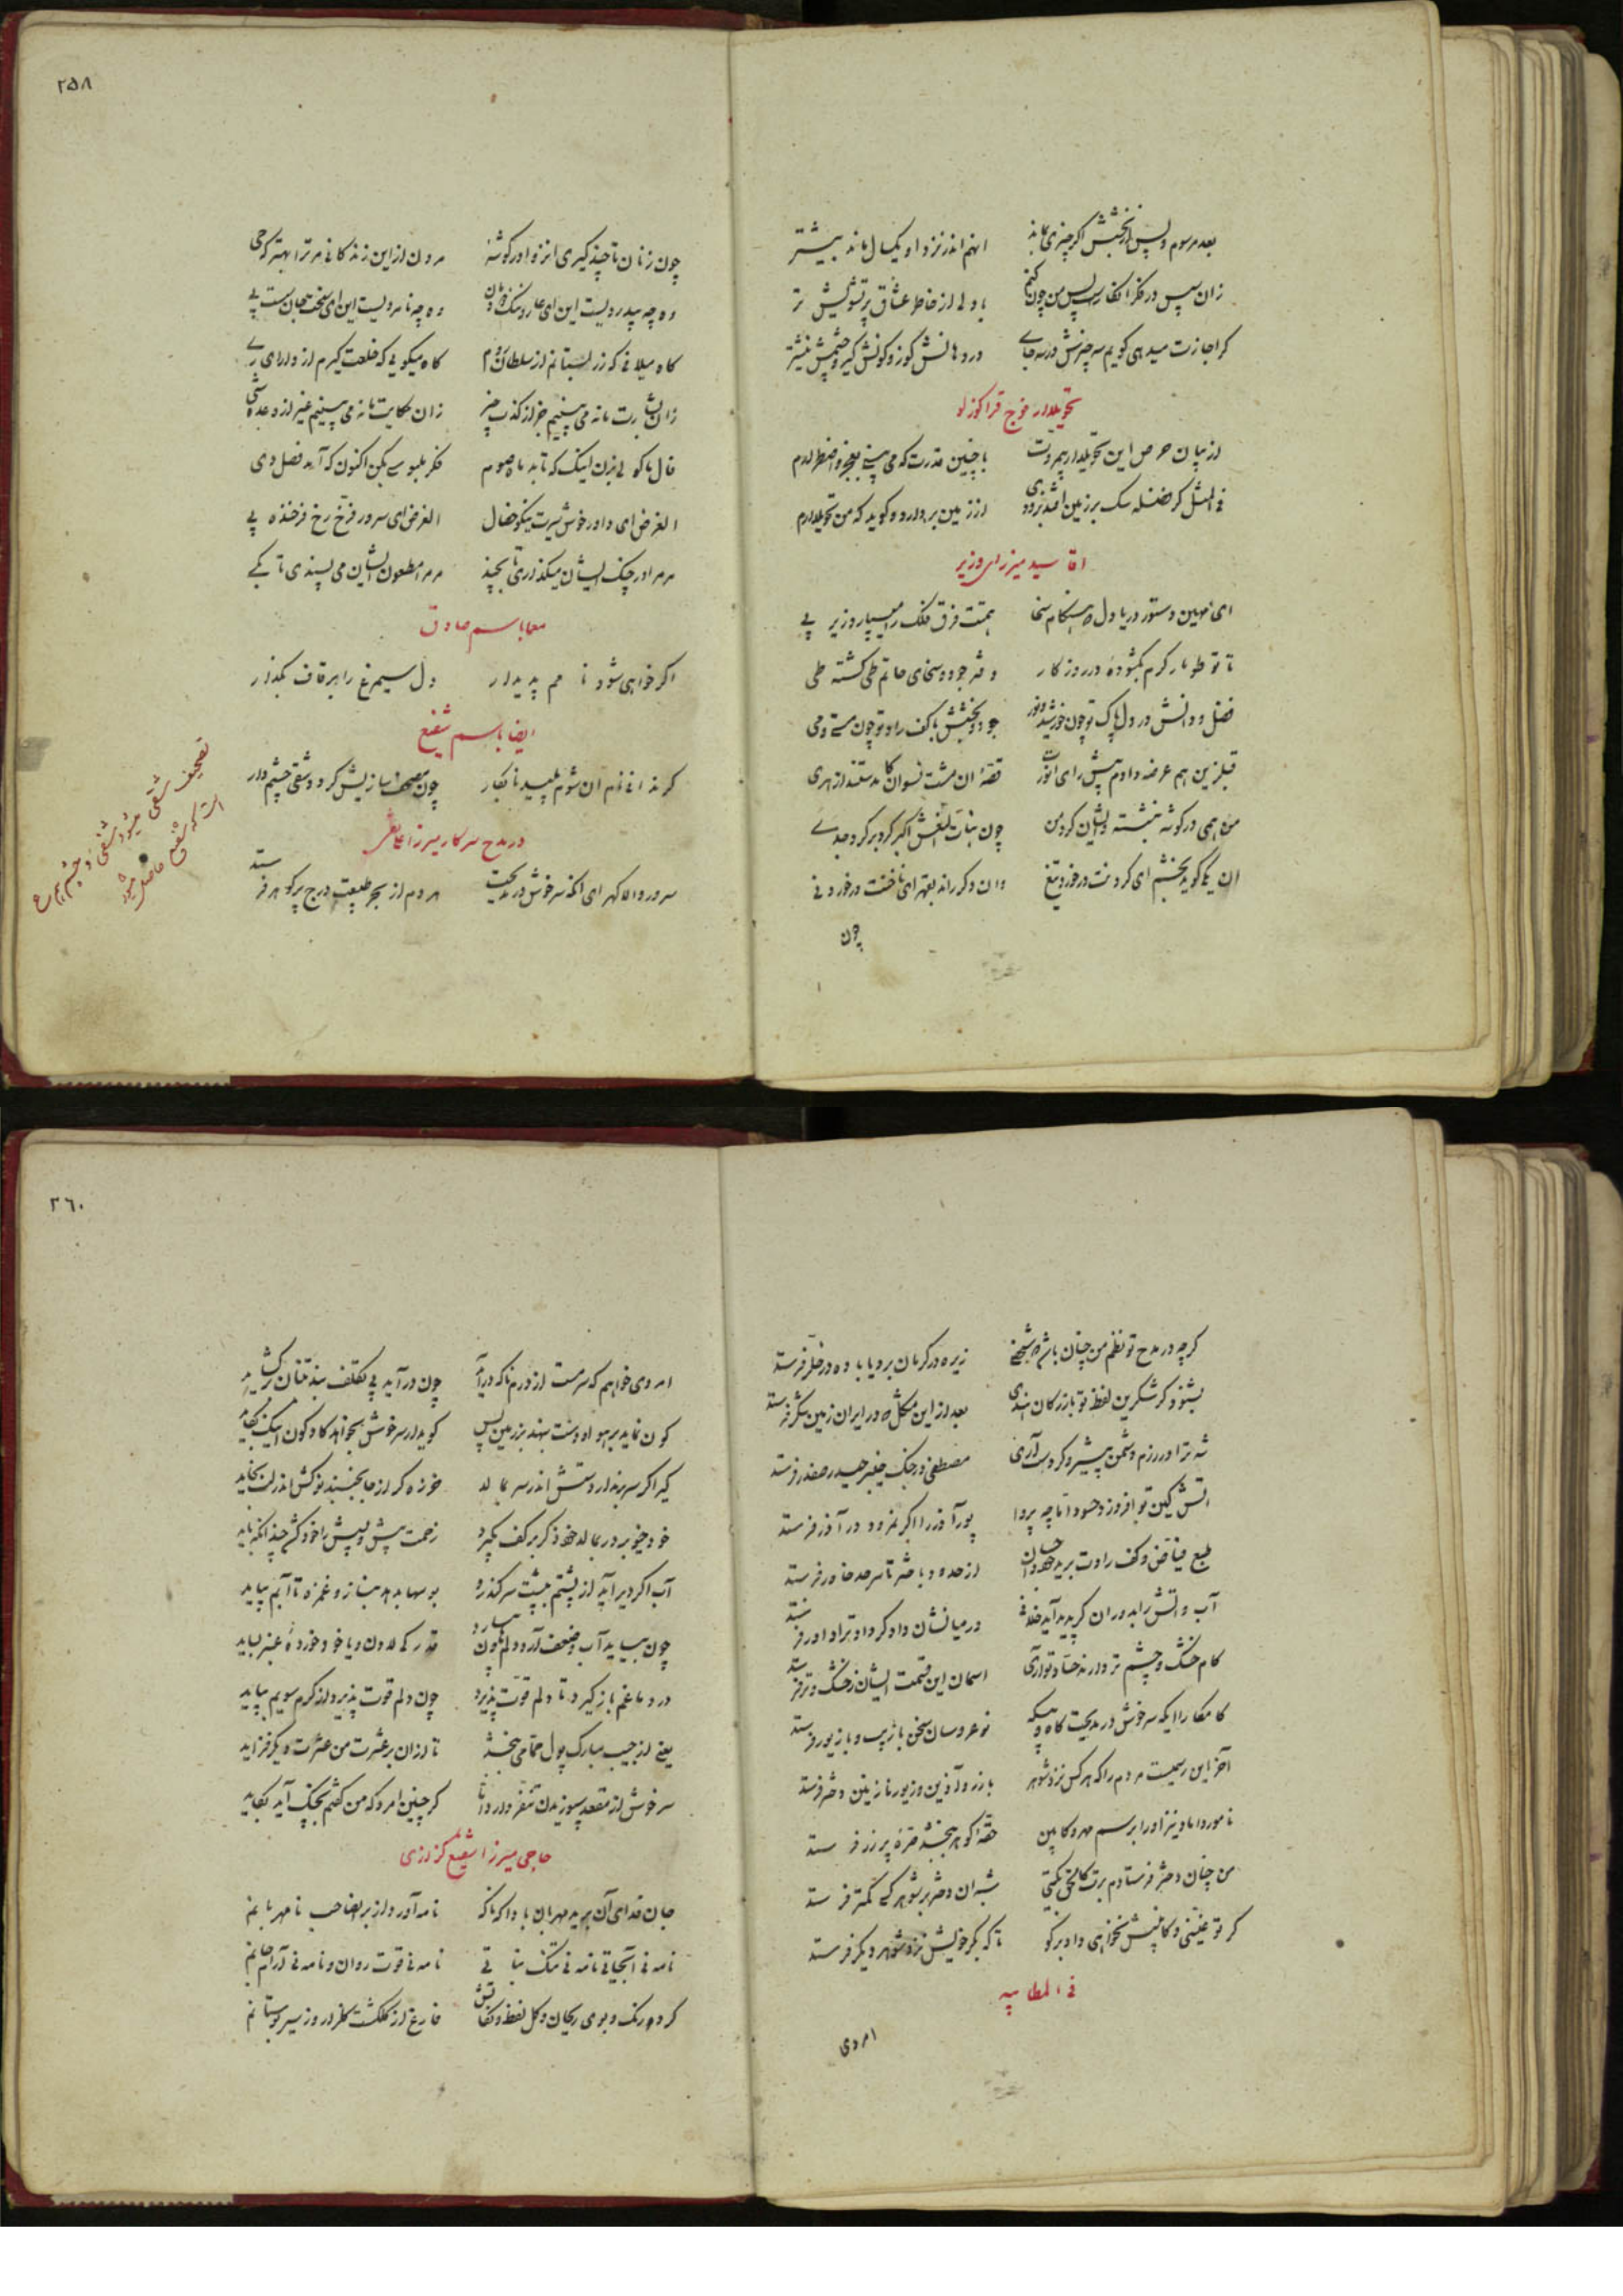 بعد مرسوم و پس از بخشش اگر چیزی بماند
انهم اندر نزد او یکسال ماند بیشتر
زان سپس در فکر
با دلی از خاطر عشاق پر تشویش تر
گر اجازت میدهی گویم سه چیزش در سه جای
در دهانش گوز و کونش کیر و چشمش نیشتر
تحویلدار فوج قراگوزلو
از بیان حرص این تحویلدار بیمروت
با چنین قدرت که می بینی بعجز و اضطرارم
فی المثل گر فضله سک بر زمین افتد بزودی
از زمین بردارد و گوید که من تحویلدارم
اقا سید میرزای وزیر
ای مهین دستور دریا دل که هنگام سخا
همتت فرق فلک را میسپارد زیر پی
تا تو طومار کرم بگشودهٔ در روزگار
دفتر جود و سخای حاتم طی گشته طی
فضل و دانش در دل پاک تو چون خورشید و نور
جود و بخشش با کف راد تو چون مستی و می
قبل ازین هم عرضه دادم پیش رای انورت
قصهٔ ان مشت نسوان کامدستند از هری
من همی در گوشه بنشسته و ایشان گرد من
چون بنات النعش اکبر گرد بر گرد جدی
ان یکی گوید بخشم ای گردنت در خورد تیغ
وان دگر راند بقهر ای ناخنت در خورد نی
چون
۲۵۸
چون زنان تا چند گیری انزوا در گوشهٔ
مردن از این زندگانی مر ترا بهتر که حی
وه چه بیدردیست این ای عار و ننگ دودمان
وه چه نامردیست این ای سخت جان سست پی
گاه میلافی که زر بستانم از سلطان روم
گاه میگویی که خلعت گیرم از دارای ری
زان بشارت ما نه می بینیم جز از کذب چیز
زان حکایت ما نه می بینیم غیر از وعده شی
فال ماکولی بزن اینک که تابد ماه صوم
فکر ملبوسی بکن اکنون که آید فصل دی
الغرض ای داور خوش سیرت نیکو خصال
الغرض ای سرور فرخ رخ فرخنده پی
مر مرا در چنگ ایشان میگذاری تا بچند
مر مرا مطعون ایشان می پسندی تا بکی
معما باسم صادق
اگر خواهی شود نامم پدیدار
دل سیمرغ را بر قاف بگذار
ایضا باسم شفیع
گر ندانی نام ان شوم پلید نابکار
چون مصحف سازیش گردد شقی چشم دار
تصحیف شقی میشود شفی و چشم هم ع
است که شفیع حاصل میشود
در مدح سرکار میرزا
سرور والا گهر ای انکه سرخوش در مدیحت
هر دم از بحر طبیعت درج پر گوهر فرستد
گرچه در مدح تو نظم من چنان باشد که شخصی
زیره در کرمان برد یا باده در خلر فرستد
بشنود گر شکرین لفظ تو بازرگان هندی
بعد از این مشکل که در ایران زمین شکر فرستد
شه ترا در رزم دشمن پیشرو کردست آری
مصطفی در جنگ خیبر حیدر صفدر فرستد
اتش کین تو افروزد حسود اما چه پروا
پور آذر را اگر نمرود در آذر فرستد
طبع فیاض و کف رادت برید جود و احسان
از حدود باختر تا سرحد خاور فرستد
آب و اتش را بدوران گر پدید آید خلافی
در میانشان دادگر داد ترا داور فرستد
کام خشک و چشم تر دارند حساد تو آری
اسمان این قسمت ایشان ز خشک و تر فرستد
کامکارا ایکه سرخوش در مدیحت گاه و بیگه
نوعروسان سخن با زیب و با زیور فرستد
آخر این رسمیست مردم را که هر کس نزد شوهر
با زر و آذین و زیور نازنین دختر فرستد
نامور داماد نیز او را برسم مهر و کابین
حقهٔ گوهر ببخشد صرهٔ پر زر فرستد
من چنان دختر فرستادم برت کامثال بختی
شه بران دختر بر شوهر کسی کمتر فرستد
گر تو عنینی و کابینش نخواهی داد برگو
تا که بکر خویش نزد شوهر دیگر فرستد
فی المطایبه
امردی
۲۶۰
امردی خواهم که سرمست از درم ناگه درآید
چون درآید بی تکلف بند تنبان برگشاید
کون نماید بر هوا و دست بنهد بر زمین پس
گوید ار سرخوش بخواهد گاد کون اینک بگاید
کیر اگر سر برندارد دستش اندر سر بمالد
خرزه گر از جا نجنبد نوکش اندر لب بخاید
خود خیو بر در بمالد خود ذکر بر کف بگیرد
زحمت پیش و پیش را خود کشد چندانکه باید
آب اگر دیر آید از پشتم بپشت سر گذارد
بوسها بدهد بناز و غمزه تا آبم بیاید
چون بیاید آب و ضعف آرد دلم
قدری لادون و یا خود خوردهٔ عنبر بساید
در دماغم بازگیرد تا دلم قوت پذیرد
چون دلم قوت پذیرد از کرم سویم بپاید
یعنی از جیب مبارک پول حمامی ببخشد
تا از ان بر عشرت من عشرت دیگر فزاید
سرخوش از مقعد سپوزیدن تنفر دارد اما
گر چنین امرد که من گفتم بچنگ آید بگاید
حاجی میرزا شفیع گزازی
جان فدای آن برید مهربان بادا که ناگه
نامه آورد از بر صاحب نامهربانم
نامه نی آبحیاتی نامه نی تنگ نباتی
نامه نی قوت روان و نامه نی آرام جانم
کرده رنگ و بوی ریحان و گل لفظ و نکاتش
فارغ از گلگشت گلزار و ز سیر بوستانم